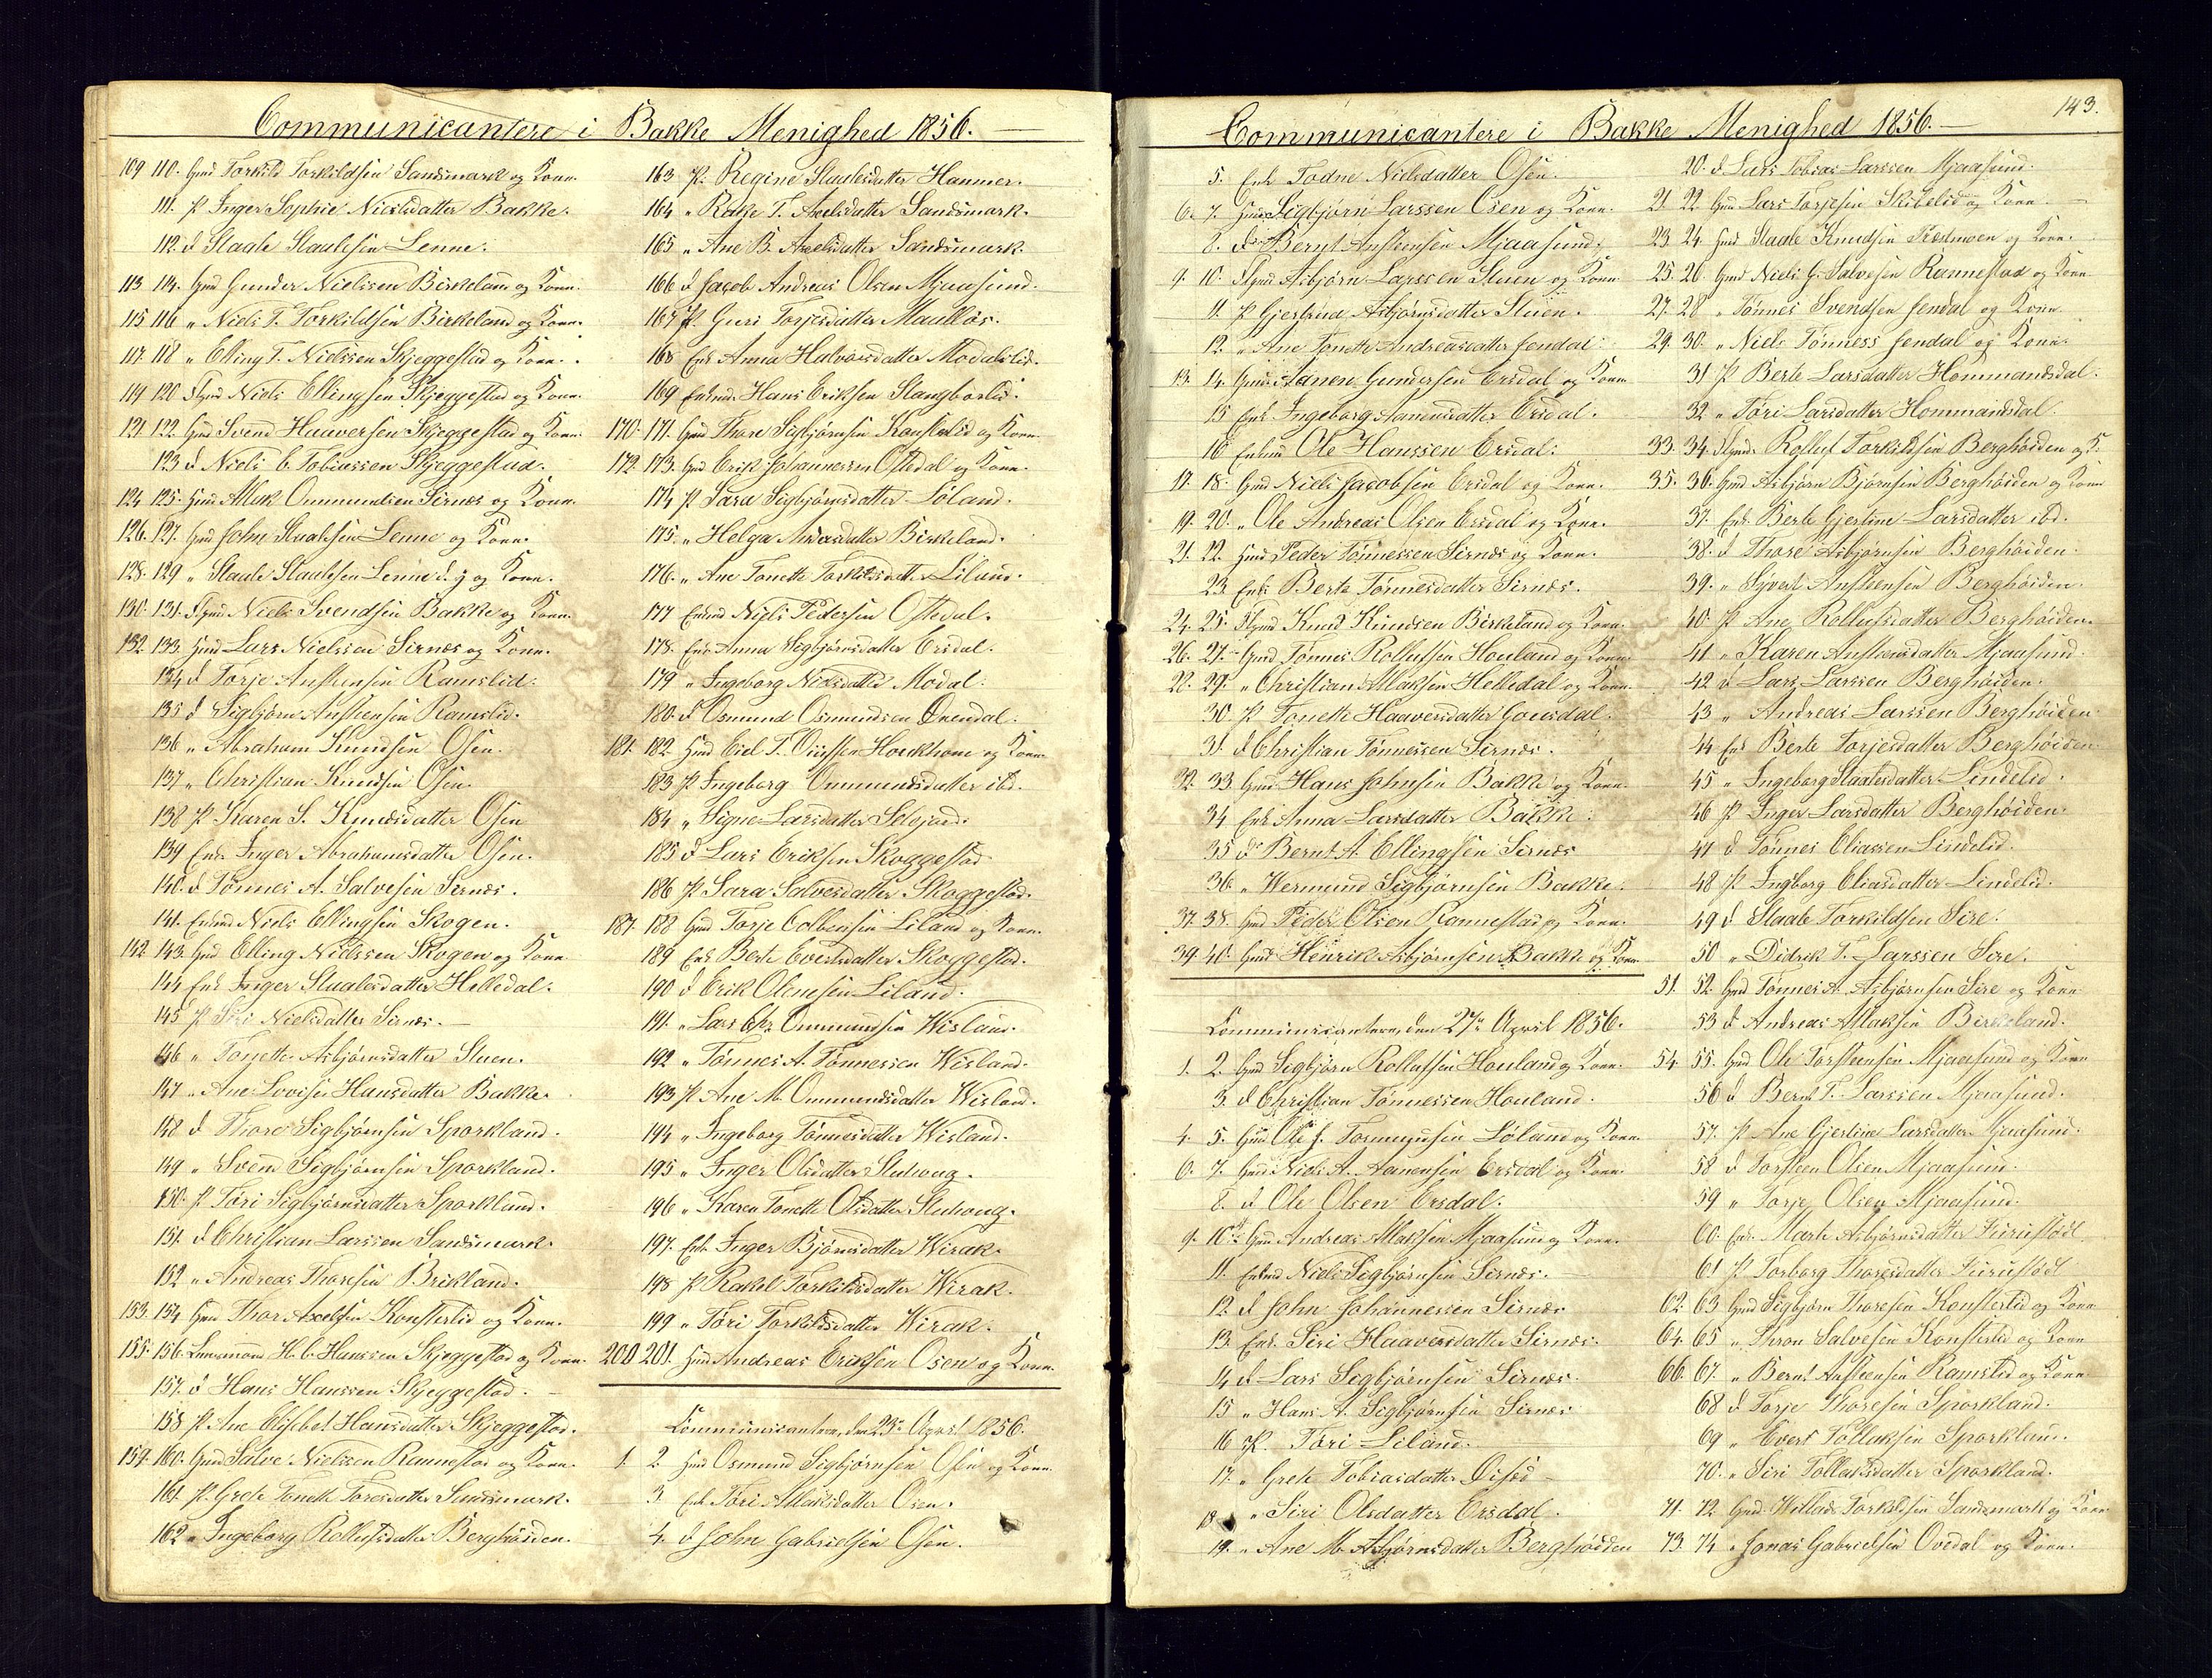 Communicantere i Bakke Menighed 1856.
109 110. Gmd Torkild Torkildsen Sandsmark og Kone.
111. P Inger Sophie Nielsdatter Bakke.
112. d Staale Staalesen Lenne.
113 114. Gmd Gunder Nielssen Birkeland og Kone.
115 116 " Niels T. Torkildsen Birkeland og Kone.
117. 118 " Elling T. Nielssen Skjeggestad og Kone.
119 120 Niels Ellingsen Skjeggestad og Kone.
121 122 Gmd Svend Haaversen Skjeggestad og Kone.
123 d Niels C. Tobiassen Skjeggestad.
124 125. Hmd Atlak Ommundsen Sirnæs og Kone.
126. 127. Gmd John Staalesen Lenne og Kone.
128. 129 " Staale Staalesen Lenne d. y og Kone.
130. 131. Niels Svendsen Bakke og Kone.
132. 133. Hmd Lars Nielssen Sirnæs og Kone.
134 d Torje Anstensen Ramslid.
135 d Sigbjørn Anstensen Ramslid.
136 " Abraham Knudsen Osen.
137 " Christian Knudsen Osen.
138 P Karen S. Knudsdatter Osen
139 Enk. Inger Abrahamsdatter Osen.
140. d Tønnes A. Salvesen Sirnæs.
141. Enkmd Niels Ellingsen Skogen.
142. 143. Gmd Elling Nielssen Skogen og Kone
144 Enk Inger Staalesdatter Helledal.
145 P Siri Nielsdatter Sirnæs.
146 " Tonette Asbjørnsdatter Stuen.
147 " Ane Lovise Hansdatter Bakke.
148 d Thore Sigbjørnsen Sporkland.
149 " Svend Sigbjørnsen Sporkland.
150. P Tori Sigbjørnsdatter Sporkland.
151. d Christian Larssen Sandsmark.
152 " Andreas Thoresen Brikland.
153. 154 Gmd Thor Axelsen Konsterlid og Kone.
155. 156. Lensmand H. C. Hanssen Skjeggestad og Kone.
157. d Hans Hanssen Skjeggestad.
158 P. Ane Elisbet Hansdatter Skjeggestad.
159. 160. Gmd Salve Nielssen Rannestad og Kone.
161 P. Grete Tonette Toresdatter Sandsmark.
162 " Ingeborg Rollufsdatter Berghøiden.
163 P. Regine Staalesdatter Hammer.
164 " T. Axelsdatter Sandsmark.
165 " Ane B. Axelsdatter Sandsmark
166 d Jacob Andreas Olsen Mjaasund.
167 P. Guri Torjesdatter
168 Enk Anna Halvorsdatter Modalslid.
169 Enkmd. Hans Eriksen Stangborlid.
170. 171. Gmd Thore Sigbjørnsen Konsterlid og Kone.
172. 173. Gmd Erik Johannessen Oftedal og Kone.
174 P Sara Sigbjørnsdatter Løland.
175. " Helga Birkeland.
176. " Ane Tonette Torkildsdatter Liland.
177 Enkmd Niels Pedersen Oftedal.
178. Enk. Anna Sigbjørnsdatter Ersdal.
179 " Ingeborg Nielsdatter Modal.
180. d Osmund Osmundsen
181. 182 Hmd Eiel T. og Kone.
183 P Ingeborg Ommundsdatter ibd.
184 " Signe Larsdatter
185 d Lars Eriksen Skoggestad
186 P Sara Salvesdatter Skoggestad.
187. 188 Gmd Torje Liland og Kone.
189 Enk Berte Evertsdatter Skoggestad.
190 d Erik Olenesen Liland.
191. " Lars Chr. Ommundsen Wisland.
192 " Tønnes A. Tønnessen Wisland.
193 P Ane M. Ommundsdatter Wisland.
194 " Ingeborg Tønnesdatter Wisland.
195 " Inger Olsdatter Stuhoug.
196 " Karen Tonette Olsdatter Stuhoug.
197. Enk. Inger Bjørnsdatter Wirak.
198 P Rakel Torkildsdatter Wirak.
199 " Tori Torkildsdatter Wirak.
200 201. Hmd Andreas Eriksen Osen og Kone.
Communicantere, den 23de April 1856.
1. 2. Hmd Osmund Sigbjørnsen Osen og Kone.
3. Enk Tori Atlaksdatter Osen.
4. d John Gabrielsen Osen.
143.
Communicantere i Bakke Menighed 1856.
5. Enk Todne Nielsdatter Osen.
6. 7. Hmd Sigbjørn Larssen Osen og Kone.
8. d Bernt Anstensen Mjaasund.
9. 10. Asbjørn Larssen Stuen og Kone
11. P Gjertrud Asbjørnsdatter Stuen.
12. " Ane Tonette Andreasdatter Jendal.
13. 14. Gmd. Aanen Gundersen Ersdal og Kone
15 Enk. Ingeborg Aanensdatter Ersdal.
16 Enkmd Ole Hanssen Ersdal.
17. 18. Gmd Niels Jacobsen Ersdal og Kone.
19. 20. " Ole Andreas Olsen Ersdal og Kone.
21. 22. Hmd Peder Tønnessen Sirnæs og Kone.
23. Enk. Berte Tønnesdatter Sirnæs.
24. 25. Knud Knudsen Birkeland og Kone.
26. 27. Gmd Tønnes Rollufssen Houland og Kone.
28. 29. " Christian Atlaksen Helledal og Kone.
30. P Tonette Haaversdatter Gousdal.
31. d Christian Tønnessen Sirnæs.
32. 33. Gmd Hans Johnsen Bakke og Kone.
34 Enk Anna Larsdatter Bakke.
35 d Bernt A. Ellingsen Sirnæs
36. " Wermund Sigbjørnsen Bakke.
37. 38. Gmd Peder Olsen Rannestad og Kone.
39. 40. Gmd Henrik Asbjørnsen Bakke og Kone.
Communicantere, den 27de April 1856.
1. 2. Gmd Sigbjørn Rollufssen Houland og Kone.
3. d Christian Tønnessen Houland.
4. 5. Gmd Ole J. Løland og Kone.
6. 7. Gmd Niels A. Aanensen Ersdal og Kone.
8. d Ole Olsen Ersdal.
9. 10. Gmd Andreas Atlaksen Mjaasund og Kone.
11. Enkmd Niels Sigbjørnsen Sirnæs.
12. d John Johannessen Sirnæs
13. Enk. Siri Haaversdatter Sirnæs.
14 d Lars Sigbjørnsen Sirnæs.
15 " Hans A. Sigbjørnsen Sirnæs
16 P. Tori Liland.
17. " Grete Tobiasdatter
18 " Siri Olsdatter Ersdal.
19. " Ane M. Asbjørnsdatter Berghøiden
20. d Lars Tobias Larssen Mjaasund.
21 22. Gmd Lars Torjesen Skibelid og Kone.
23. 24. Hmd Staale Knudsen og Kone.
25. 26 Gmd Niels J. Salvesen Rannestad og Kone
27. 28 " Tønnes Svendsen Jendal og Kone
29. 30. " Niels Tønness. Jendal og Kone.
31 P Berte Larsdatter Hommandsdal.
32 " Tori Larsdatter Hommandsdal.
33. 34. Rolluf Torkildsen Berghøiden og K.
35. 36. Gmd Asbjørn Bjørnsen Berghøiden og Kone
37. Enk. Berte Gjertine Larsdatter ibd.
38. d Thore Asbjørnsen Berghøiden.
39. " Syvert Anstensen Berghøiden.
40. P Ane Rollufsdatter Berghøiden.
41 " Karen Anstensdatter Mjaasund.
42 d Lars Larssen Berghøiden.
43 " Andreas Larssen Berghøiden
44 Enk Berte Torjesdatter Berghøiden.
45 " Ingeborg Staalesdatter Lindelid.
46 P Inger Larsdatter Berghøiden.
47 d Tønnes Eliassen Lindelid.
48 P Ingborg Eliasdatter Lindelid.
49 d Staale Torkildsen Sire.
50 " Didrik T. Larssen Sire.
51. 52. Gmd Tønnes A. Asbjørnsen Sire og Kone
53 d Andreas Atlaksen Birkeland.
54 55. Gmd Ole Torstensen Mjaasund og Kone
56 d Bernt T. Larssen Mjaasund.
57. P Ane Gjertine Larsdatter Mjaasund.
58 d Torsten Olsen Mjaasund.
59 " Torje Olsen Mjaasund.
60. Enk. Marte Asbjørnsdatter Furustøl
61 P Torborg Thoresdatter Furustøl
62. 63 Gmd Sigbjørn Thoresen Konsterlid og Kone
64. 65 " Thron Salvesen Konsterlid og Kone
66. 67. " Bernt Anstensen Ramslid og Kone
68 d Torje Thoresen Sporkland.
69 " Evert Tollaksen Sporkland.
70. " Siri Tollaksdatter Sporkland.
71. 72 Gmd. Willads Torkildsen Sandsmark og Kone
73. 74 " Jonas Gabrielsen Ovedal og Kone.